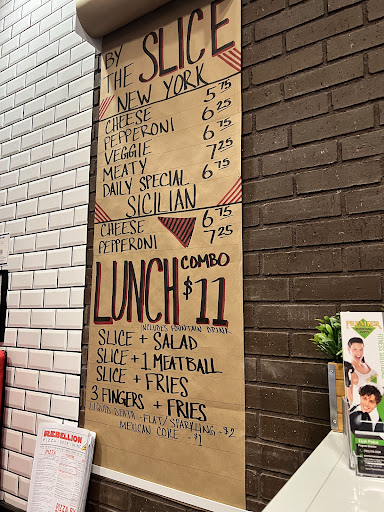 BY THE SLICE
NEW YORK
CHEESE 5.75
PEPPERONI 6.25
VEGGIE 6.75
MEATY 7.25
DAILY SPECIAL 6.75
SICILIAN
CHEESE 6.75
PEPPERONI 7.25
LUNCH COMBO $11
INCLUDES FOUNTAIN DRINK
SLICE + SALAD
SLICE + 1 MEATBALL
SLICE + FRIES
3 FINGERS + FRIES
LIQUID DEATH - FLAT/SPARKLING - $2
MEXICAN COKE - $1
REBELLION
PIZZA